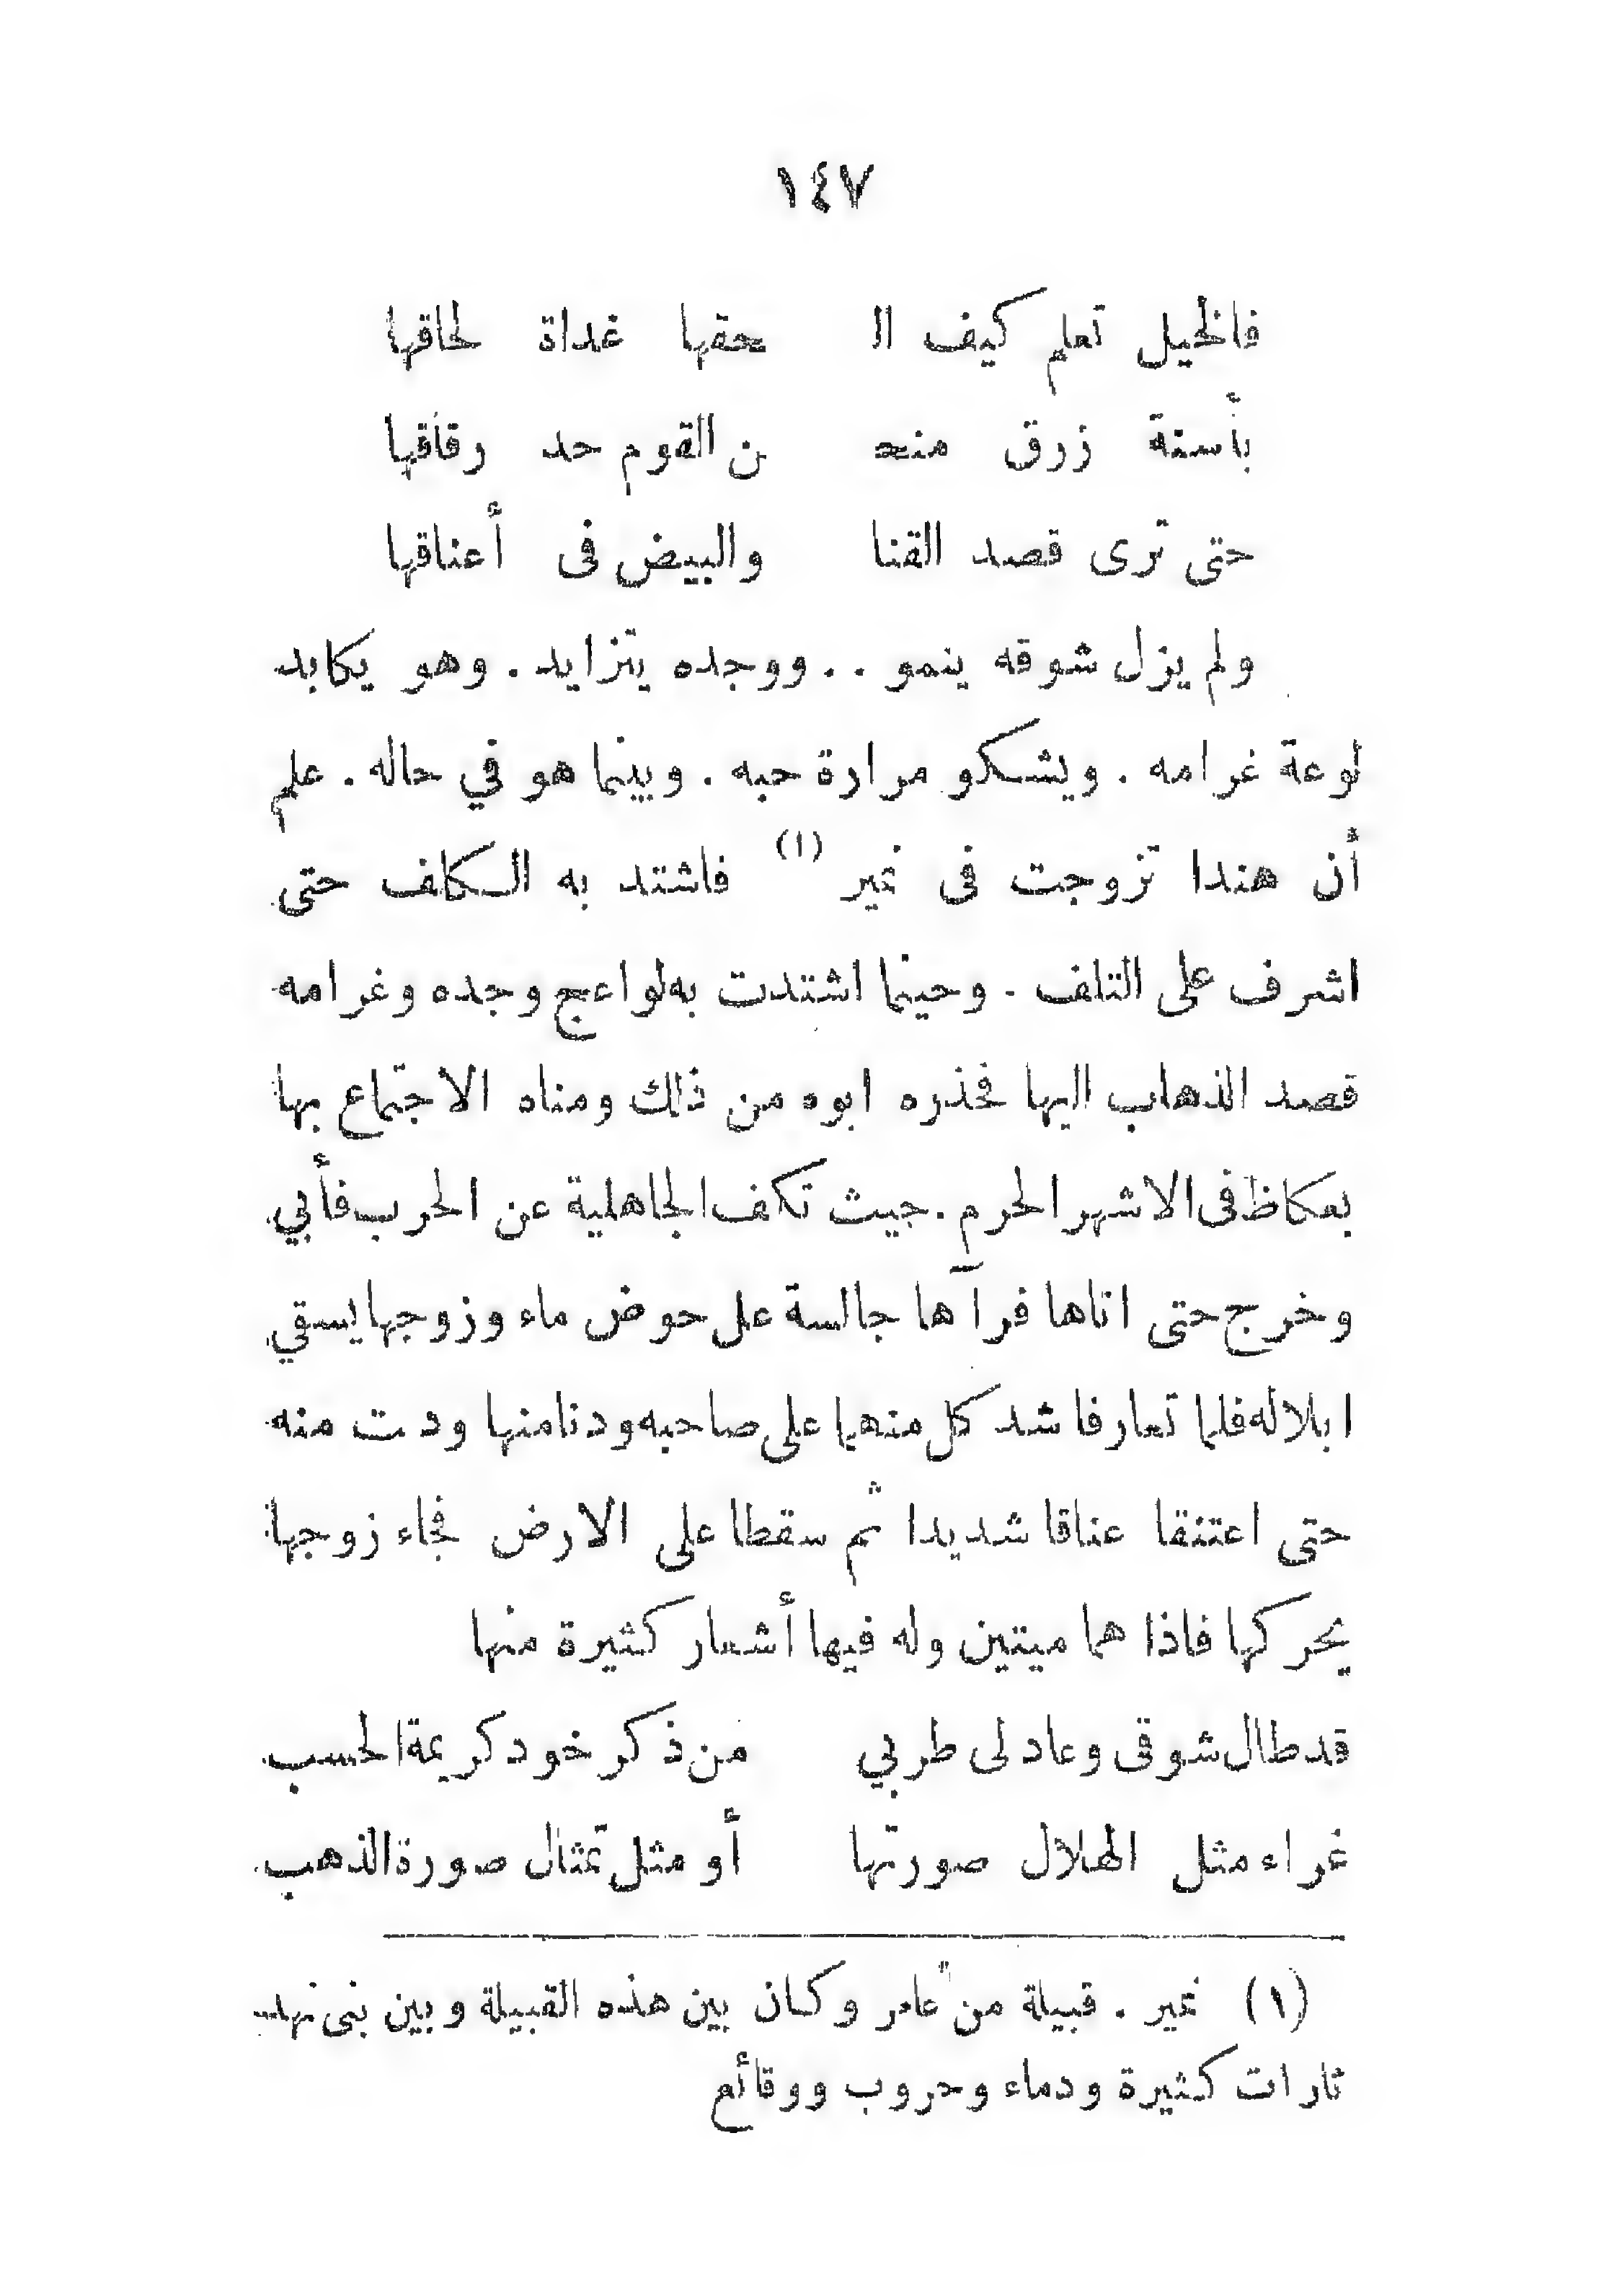 ١٤٧
فالخيل تعلم كيف الـ حقها غداة لحاقها
بأسنة زرق منحـ ـن القوم حد رقاقها
حتى ترى قصد القنا والبيض فى أعناقها
ولم يزل شوقه ينمو . . ووجده يتزايد . وهو يكابد
لوعة غرامه . ويشكو مرارة حبه . وبينما هو في حاله . علم
أن هندا تزوجت فى نمير (١) فاشتد به الكلف حتى
اشرف على التلف . وحينما اشتدت به لواعج وجده وغرامه
قصد الذهاب اليها فحذره ابوه من ذلك ومناه الاجتماع بها
بعكاظ فى الاشهر الحرم . حيث تكف الجاهلية عن الحرب فأبي
وخرج حتى اتاها فرآها جالسة على حوض ماء وزوجها يسقي
ابلا له فلما تعارفا شد كل منهما على صاحبه ودنا منها ودت منه
حتى اعتنقا عناقا شديدا ثم سقطا على الارض فجاء زوجها
يحركها فاذا هما ميتين وله فيها أشعار كثيرة منها
قد طال شوقى وعاد لى طربي من ذكر خود كريمة الحسب
غراء مثل الهلال صورتها أو مثل تمثال صورة الذهب
(١) نمير . قبيلة من عامر وكان بين هذه القبيلة وبين بنى نهد
ثارات كثيرة ودماء وحروب ووقائع